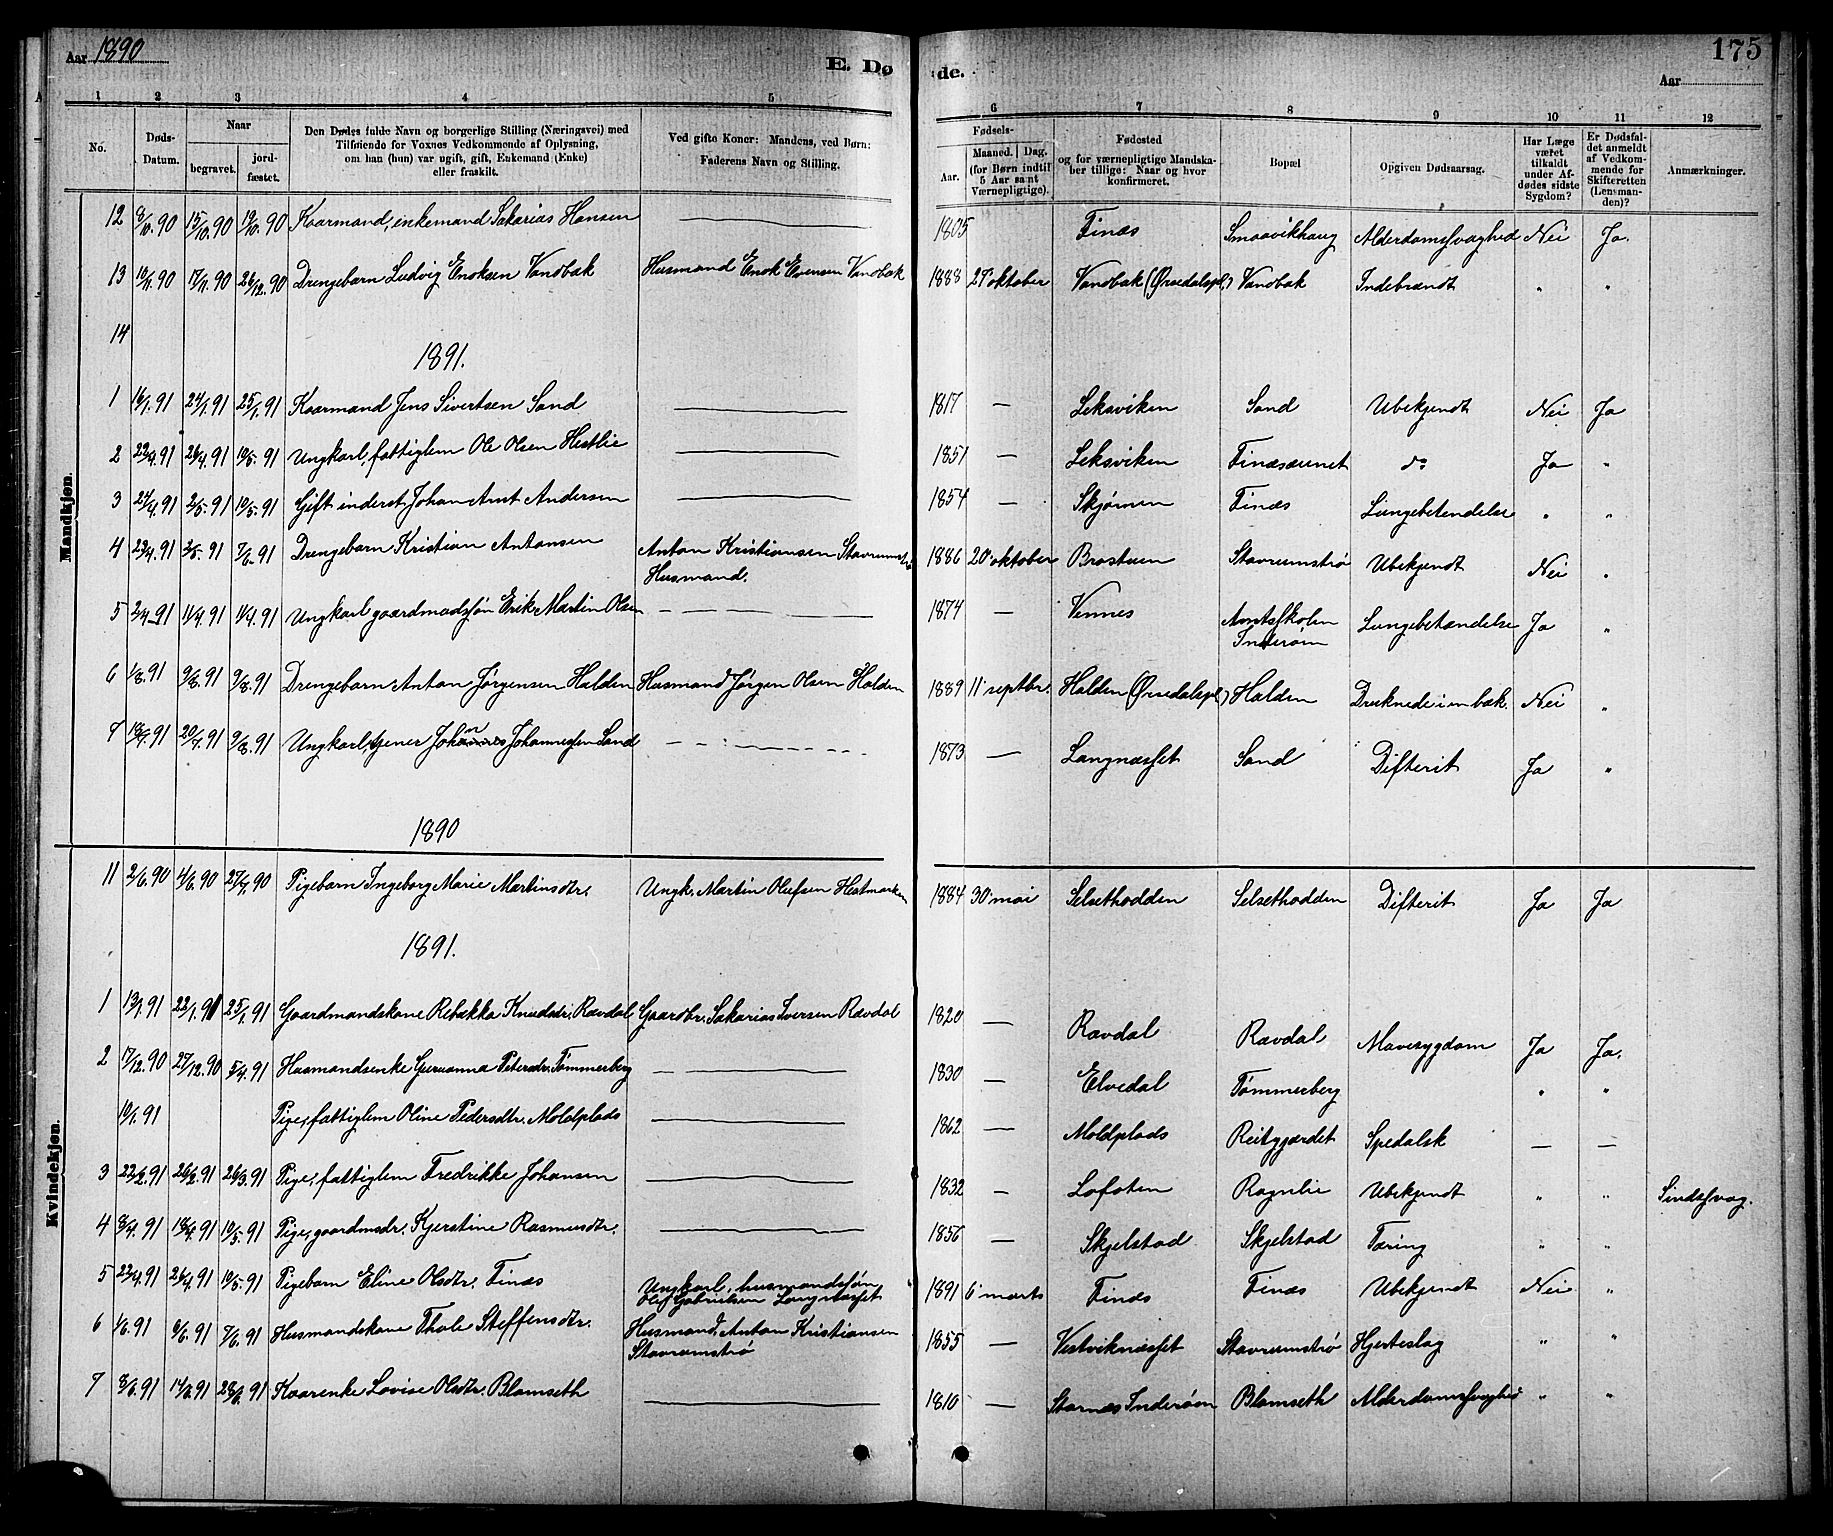 Aar 1890
E. Dø
de.
175
Aar
1 2 3 4 5 6 7 8 9 10 11 12
No.
Døds-Datum.
Naar
begravet.
jord-fæstet.
Den Dødes fulde Navn og borgerlige Stilling (Næringsvei) med
Tilføiende for Voxnes Vedkommende af Oplysning,
om han (hun) var ugift, gift, Enkemand (Enke)
eller fraskilt.
Ved gifte Koner: Mandens, ved Børn:
Faderens Navn og Stilling.
Fødsels-
Aar.
Maaned. Dag.
(for Børn indtil
5 Aar samt
Værnepligtige).
Fødested
og for værnepligtige Mandska-
ber tillige: Naar og hvor
konfirmeret.
Bopæl
Opgiven Dødsaarsag.
Har Læge
været
tilkaldt
under Af-
dødes sidste
Sygdom?
Er Dødsfal-
det anmeldt
af Vedkom-
mende for
Skifteretten
(Lensman-
den)?
Anmærkninger.
Mandkjøn.
12 8/10.90 15/10.90 19/10.90 Kaarmand, enkemand Sakarias Hansen 1805 Finæs Smaavikhaug Alderdomssvaghed Nei Ja.
13 10/11.90 17/11.90 26/12.90 Drengebarn Ludvig Enoksen Vandbak Husmand Enok Evensen Vandbak 1888 27' oktober Vandbak (Ørsedalspl.) Vandbak Indebrændt " "
14
1891.
1 16/1.91 24/1.91 25/1.91 Kaarmand Jens Sivertsen Sand 1817 — Leksviken Sand Ubekjendt Nei Ja
2 22/4.91 26/4.91 10/5.91 Ungkarl, fattiglem Ole Olsen Hestlie 1851 — Leksviken Finæsaunet do Ja "
3 27/4.91 2/5.91 10/5.91 Gift inderst Johan Arnt Andersen 1854 — Skjørnen Finæs Lungebetendelse " "
4 23/4.91 3/5.91 7/6.91 Drengebarn Kristian Antonsen Anton Kristiansen Stavrumstrø
Husmand. 1886 20' oktober Brostuen Stavrumstrø Ubekjendt Nei "
5 2/4.91 11/4.91 11/4.91 Ungkarl gaardmadssøn Erik Martin Olsen 1874 — Vennes Amtsskolen
Inderøen Lungebetændelse Ja "
6 1/8.91 9/8.91 9/8.91 Drengebarn Anton Jørgensen Halden Husmand Jørgen Olsen Halden 1889 11' septbr. Halden (Ørsedalspl.) Halden Druknede i en bæk. Nei "
7 20/7.91 9/8.91 Ungkarl tjener Johan Johannessen Sand 1873 — Langnæsset Sand Difterit Ja "
1890
Kvindekjøn.
11 2/6.90 4/6.90 27/7.90 Pigebarn Ingeborg Marie Martinsdtr. Ungk. Martin Olufsen Hestmarken 1884 30' mai Selsethodden Selsethodden Difterit Ja Ja
1891.
1 13/1.91 22/1.91 25/1.91 Gaardmandskone Rebekka Knudsdtr. Ravdal Gaardbr. Sakarias Iversen Ravdal 1820 — Ravdal Ravdal Mavesygdom Ja Ja.
2 17/12.90 27/12.90 5/4.91 Husmandsenke Guruanna Petersdtr. Tømmerberg 1830 — Elvedal Tømmerberg " "
10/1.91 Pige, fattiglem Oline Pedersdtr. Moldplads 1862 — Moldplads Reitgjærdet Spedalsk — —
3 22/2.91 26/2.91 26/3.91 Pige, fattiglem Fredrikke Johansen 1832 — Lofoten Ragnlie Ubekjendt " " Sindssvag.
4 8/4.91 18/4.91 10/5.91 Pige, gaardmsdr. Kjerstine Rasmusdtr. 1856 — Skjelstad Skjelstad Tæring " "
5 22/4.91 26/4.91 10/5.91 Pigebarn Eline Olsdtr. Finæs Ungkarl, husmandssøn
Oluf Gabrielsen Langnæsset 1891 6' marts Finæs Finæs Ubekjendt Nei "
6 1/6.91 6/6.91 7/6.91 Husmandskone Thale Steffensdtr. Husmand, Anton Kristiansen
Stavrumstrø 1855 — Vestviknæsset Stavrumstrø Hjerteslag " "
7 8/6.91 14/6.91 28/6.91 Kaarenke Lovise Olsdtr. Blamseth 1810 — Starnæs Inderøen Blamseth Alderdomssvaghed " "